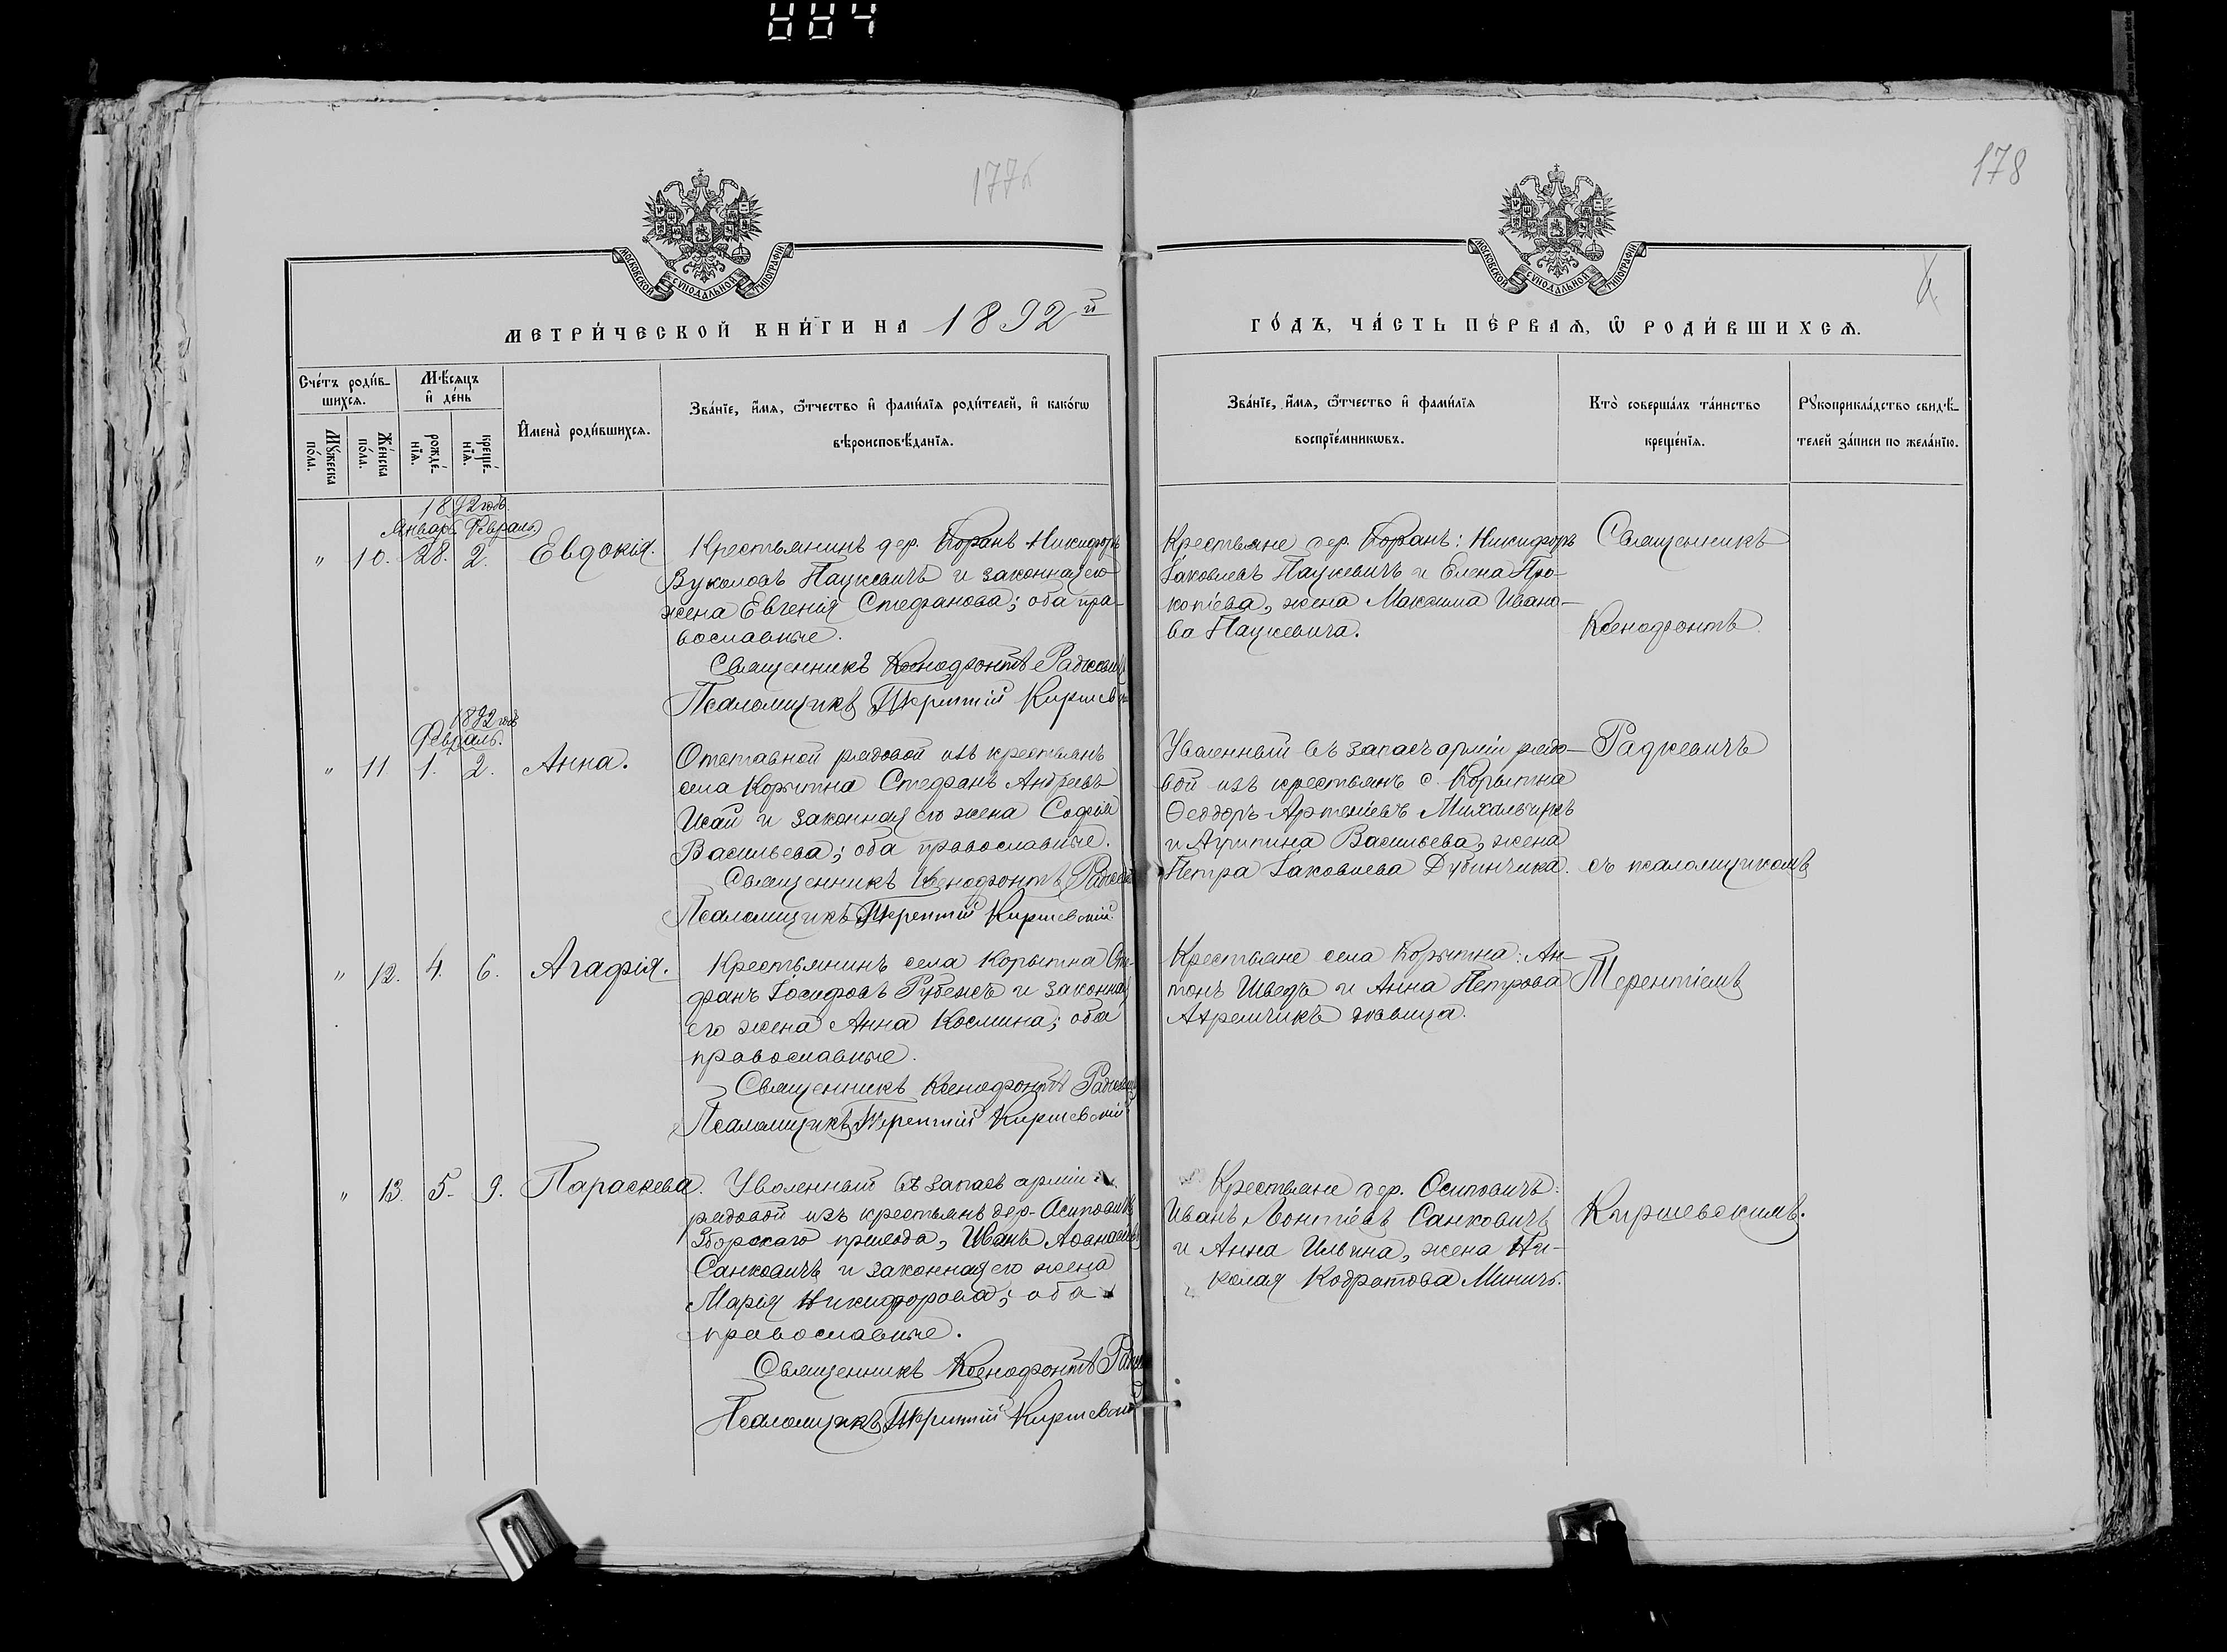 884
177б
178
МОСКОВСКОЙ СѴНОДАЛЬНОЙ ТИПОГРАФІИ
МОСКОВСКОЙ СѴНОДАЛЬНОЙ ТИПОГРАФІИ
4.
МЕТРИ́ЧЕСКОЙ КНИ́ГИ НА 1892й
ГО́ДЪ, ЧА́СТЬ ПЕ́РВАѦ, Ѡ РОДИ́ВШИХСѦ.
Сче́тъ роди́в-
шихсѧ.
Мꙋ́жеска по́ла.
Же́нска по́ла.
Мѣ́сяцъ
и҆ де́нь
рожде́-нїѧ.
креще́-нїѧ.
И҆мена̀ роди́вшихсѧ.
Зва́нїе, и҆́мѧ, ѻ҆́тчество и҆ фами́лїѧ роди́телей, и҆ како́гѡ
вѣроисповѣ́данїѧ.
Зва́нїе, и҆́мѧ, ѻ҆́тчество и҆ фами́лїѧ
воспрїе́мникѡвъ.
Кто̀ соверша́лъ та́инство
креще́нїѧ.
Рꙋкоприкла́дство свидѣ́-
телей за́писи по жела́нїю.
1892 годъ.
Январь Февраль.
" 10. 28. 2. Евдокія.
Крестьянинъ дер. Боранъ Никифоръ
Вуколовъ Пацкевичъ и законная его
жена Евгенія Стефанова; оба пра-
вославные.
Священникъ Ксенофонтъ Радкевичъ
Псаломщикъ Терентій Киршевскій
Крестьяне дер. Боранъ: Никифоръ
Іаковлевъ Пацкевичъ и Елена Про-
копіева, жена Максима Ивано-
ва Пацкевича.
Священникъ
Ксенофонтъ
1892 годъ
Февраль.
" 11 1. 2. Анна.
Отставной рядовой изъ крестьянъ
села Корытна Стефанъ Андреевъ
Исай и законная его жена Софія
Васильева; оба православные.
Священникъ Ксенофонтъ Радкевичъ
Псаломщикъ Терентій Киршевскій.
Уволенный въ запасъ арміи рядо-
вой изъ крестьянъ с. Корытна
Ѳеодоръ Артеміевъ Михальчикъ
и Агрипина Васильева, жена
Петра Іаковлева Дубинчика.
Радкевичъ
съ псаломщикомъ
" 12. 4. 6. Агафія.
Крестьянинъ села Корытна Сте-
фанъ Іосифовъ Рубежъ и законная
его жена Анна Космина; оба
православные.
Священникъ Ксенофонтъ Радкевичъ
Псаломщикъ Терентій Киршевскій
Крестьяне села Корытна: Ан-
тонъ Швецъ и Анна Петрова
Ахремчикъ дѣвица.
Терентіемъ
" 13. 5. 9. Параскева.
Уволенный въ запасъ арміи
рядовой изъ крестьянъ дер. Осиповичъ
Зборскаго прихода, Иванъ Аѳанасіевъ
Санковичъ и законная его жена
Марія Никифорова; оба
православные.
Священникъ Ксенофонтъ Радкевичъ
Псаломщикъ Терентій Киршевскій
Крестьяне дер. Осиповичъ:
Иванъ Леонтіевъ Санковичъ
и Анна Ильина, жена Ни-
колая Кодратова Миничъ.
Киршевскимъ.